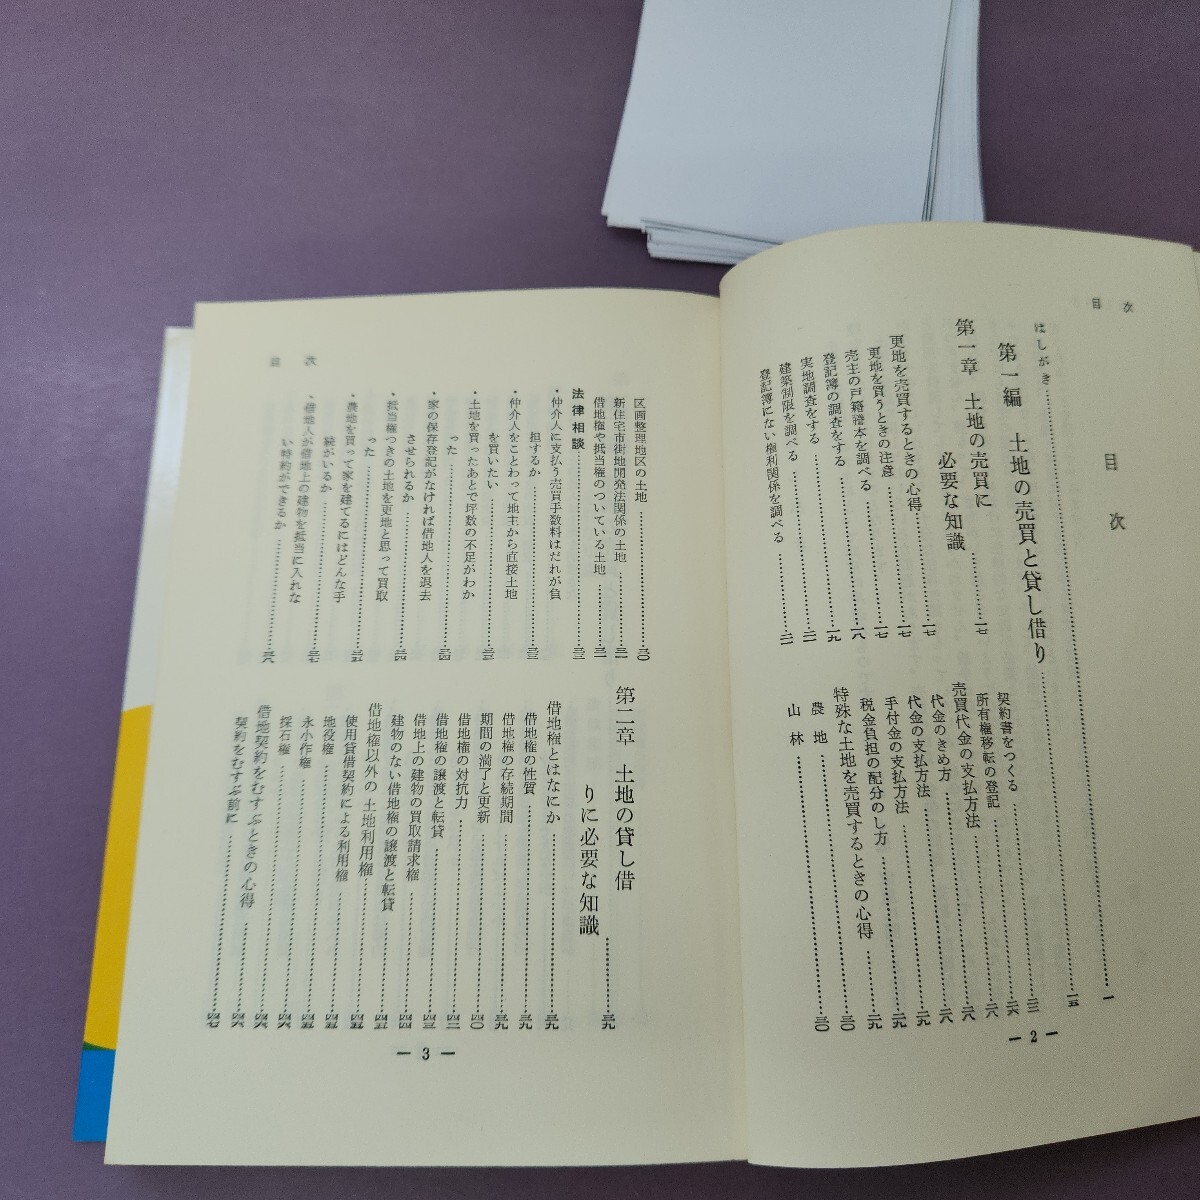 目次
目次
はしがき……一
第一編 土地の売買と貸し借り……一五
第一章 土地の売買に
必要な知識……一七
更地を売買するときの心得……一七
更地を買うときの注意……一七
売主の戸籍謄本を調べる……一八
登記簿の調査をする……一九
実地調査をする……二一
建築制限を調べる
登記簿にない権利関係を調べる……二二
契約書をつくる……二三
所有権移転の登記……二六
売買代金の支払方法……二八
代金のきめ方……二八
代金の支払方法……二九
手付金の支払方法……二九
税金負担の配分のし方……二九
特殊な土地を売買するときの心得……三〇
農地……三〇
山林
— 2 —
目次
区画整理地区の土地……三〇
新住宅市街地開発法関係の土地……三一
借地権や抵当権のついている土地……三一
法律相談……三三
・仲介人に支払う売買手数料はだれが負
担するか……三三
・仲介人をことわって地主から直接土地
を買いたい……三三
・土地を買ったあとで坪数の不足がわか
った……三四
・家の保存登記がなければ借地人を退去
させられるか……三四
・抵当権つきの土地を更地と思って買取
った……三五
・農地を買って家を建てるにはどんな手
続がいるか……三七
・借地人が借地上の建物を抵当に入れな
い特約ができるか……三八
第二章 土地の貸し借
りに必要な知識……三九
借地権とはなにか……三九
借地権の性質……三九
借地権の存続期間……三九
期間の満了と更新……四〇
借地権の対抗力……四二
借地権の譲渡と転貸……四三
借地上の建物の買取請求権……四四
建物のない借地権の譲渡と転貸……四四
借地権以外の土地利用権……四五
使用貸借契約による利用権……四五
地役権……四五
永小作権……四五
採石権……四六
借地契約をむすぶときの心得……四六
契約をむすぶ前に……四七
— 3 —